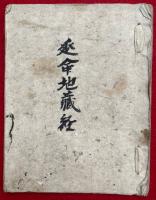 延命地蔵経